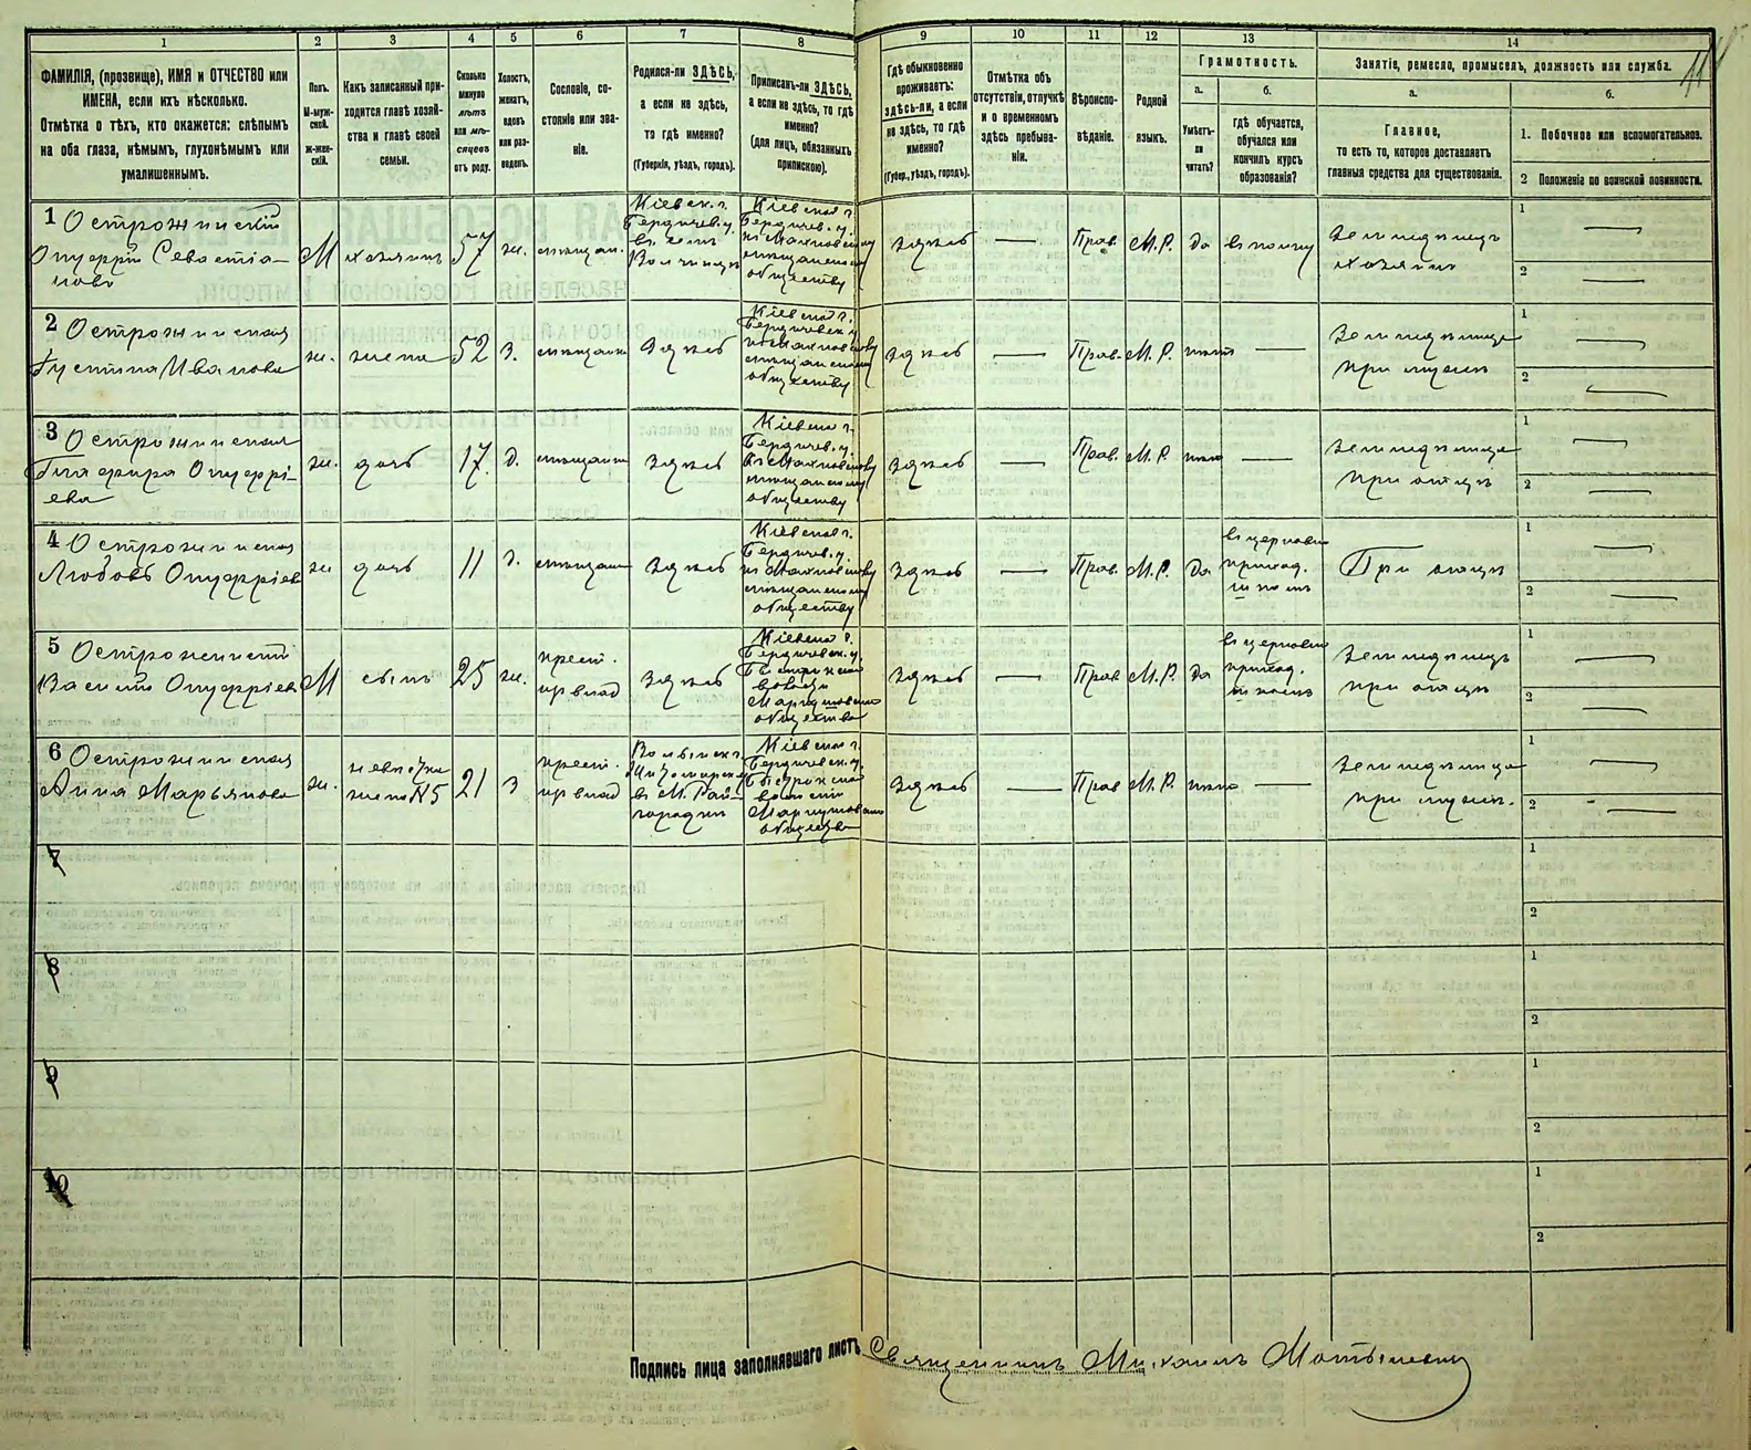 1
2
3
4
5
6
7
8
9
10
11
12
13
14
ФАМИЛІЯ, (прозвище), ИМЯ и ОТЧЕСТВО или
ИМЕНА, если ихъ нѣсколько.
Отмѣтка о тѣхъ, кто окажется: слѣпымъ
на оба глаза, нѣмымъ, глухонѣмымъ или
умалишеннымъ.
Полъ.
М-муж-
ской.
Ж-жен-
скій.
Какъ записанный при-
ходится главѣ хозяй-
ства и главѣ своей
семьи.
Сколько
минуло
лѣтъ
или мѣ-
сяцевъ
отъ роду.
Холостъ,
женатъ,
вдовъ
или раз-
веденъ.
Сословіе, со-
стояніе или зва-
ніе.
Родился-ли ЗДѢСЬ,
а если не здѣсь,
то гдѣ именно?
(Губернія, уѣздъ, городъ).
Приписанъ-ли ЗДѢСЬ,
а если не здѣсь, то гдѣ
именно?
(для лицъ, обязанныхъ
припискою).
Гдѣ обыкновенно
проживаетъ:
здѣсь-ли, а если
не здѣсь, то гдѣ
именно?
(Губер., уѣздъ, городъ).
Отмѣтка объ
отсутствіи, отлучкѣ
и о временномъ
здѣсь пребыва-
ніи.
Вѣроиспо-
вѣданіе.
Родной
языкъ.
Грамотность.
а.
Умѣетъ-
ли
читать?
б.
гдѣ обучается,
обучался или
кончилъ курсъ
образованія?
Занятіе, ремесло, промыселъ, должность или служба.
а.
Главное,
то есть то, которое доставляетъ
главныя средства для существованія.
б.
1. Побочное или вспомогательное.
2 Положеніе по воинской повинности.
1 Острожинскій
Онуфрій Севастіа-
новъ
М
хозяинъ
57
ж.
мѣщан.
Кіевск. г.
Бердичев. у.
въ селѣ
Кіевской г.
Бердичев. у.
къ Махновскому
мѣщанскому
обществу
здѣсь
—
Прав.
М.Р.
да
Земледѣлецъ
хозяинъ
1 —
2 —
2 Острожинская
Густина Иванова
ж.
жена
52
з.
мѣщанка
Здѣсь
Кіевской г.
Бердичевск. у.
къ Махновскому
мѣщанскому
обществу
здѣсь
—
Прав.
М.Р.
нѣтъ
—
Земледѣлица
при мужѣ
1 —
2 —
3 Острожинская
Глафира Онуфрі-
ева
ж.
дочь
17.
д.
мѣщанка
Здѣсь
Кіевской г.
Бердичев. у.
къ Махновскому
мѣщанскому
обществу
здѣсь
—
Прав.
М.Р.
нѣтъ
—
Земледѣлица
при отцѣ
1 —
2 —
4 Острожинская
Любовь Онуфріев
ж
дочь
11
д.
мѣщан
Здѣсь
Кіевской г.
Бердичев. у.
къ Махновскому
мѣщанскому
обществу
здѣсь
—
Прав.
М.Р.
да
въ церковно
приход.
школѣ
При отцѣ
1 —
2 —
5 Острожинскій
Василій Онуфріев
М
сынъ
25
ж.
крест.
Здѣсь
Кіевской г.
Бердичевск. у.
общества
здѣсь
—
Прав
М.Р.
да
въ церковно
приход.
школѣ
Земледѣлецъ
при отцѣ
1 —
2 —
6 Острожинская
Анна Марьянова
ж.
невѣстка
жена №5
21
з
крест.
Волынск г.
Житомирск
въ М. Рай-
городкѣ
Кіевской г.
Бердичевск. у.
общества
здѣсь
—
Прав
М.Р.
нѣтъ
—
Земледѣлица
при мужѣ.
1 —
2 —
7
1
2
8
1
2
9
1
2
10
1
2
Подпись лица заполнявшаго листъ Священникъ Михаилъ